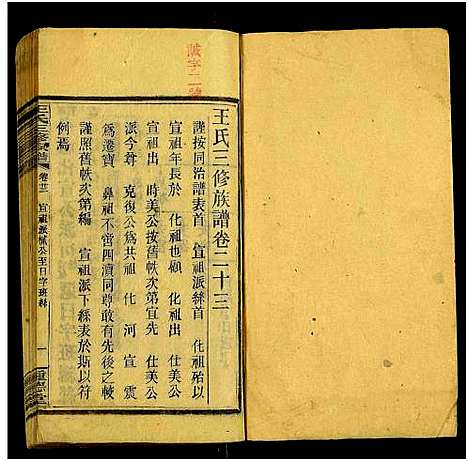 誠字二號
王氏三修族譜卷二十三
謹按同治譜表首 宣祖派緜首 化祖殆以
宣祖年長於 化祖也顧 化祖出 仕美公
宣祖出 時美公按舊帙次第宣先 仕美公
派今尊 克復公為共祖 化 河 宣 震
為遷寶 鼻祖不啻四瀆同尊敢有先後之較
謹照舊帙次第編 宣祖派下緜表於斯以符
例焉
王氏三修族譜 卷廿三 宣祖派 公至日字班緜 一